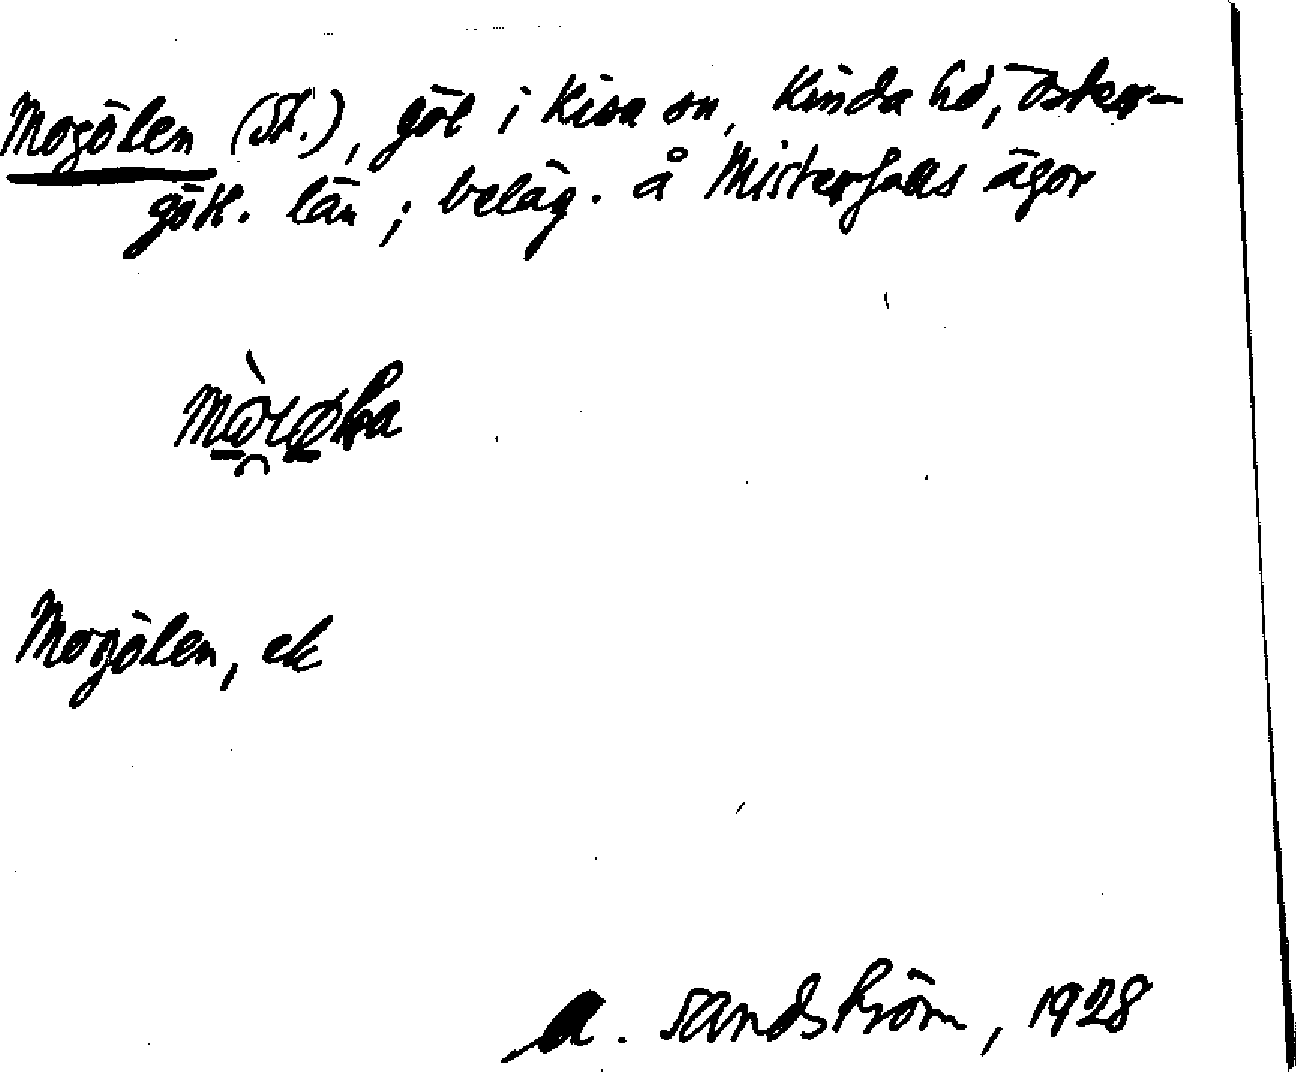 Mogölen (St.), göl i Kisa sn, Kinda hd, Öster-
götl. län; beläg. å Misterfalls ägor
Mogölen, ek
A. Sandström, 1928